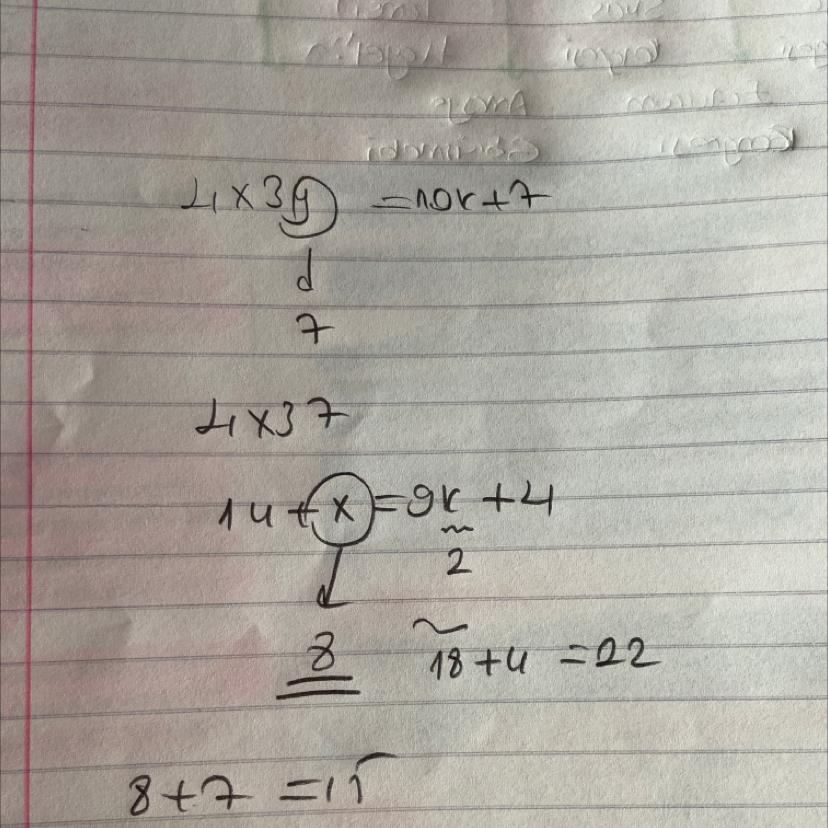 4x3y = 10k+7
↓
7
4x37
14+x = 9k+4
2
↓
8 18+4 = 22
8+7 = 15